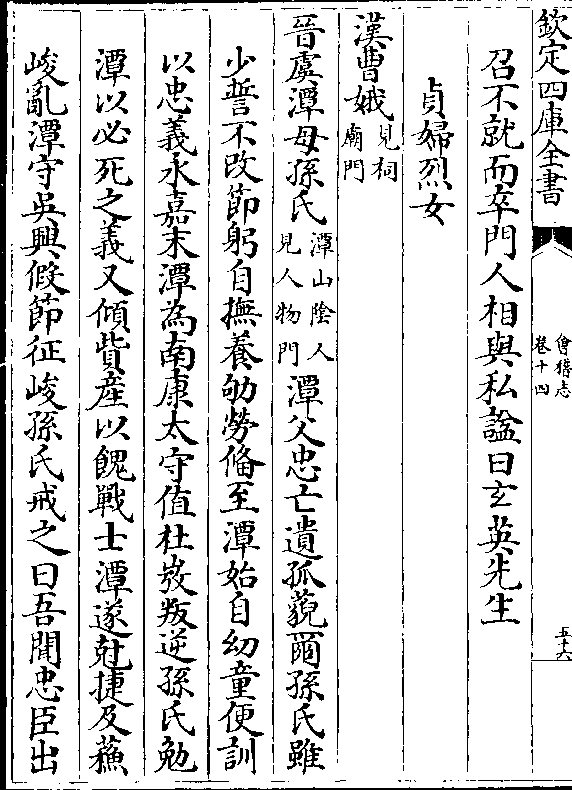 欽定四庫全書
會稽志
卷十四
五十六
召不就而卒門人相與私諡曰玄英先生
貞婦烈女
漢曹娥見祠廟門
晉虞潭母孫氏潭山陰人見人物門潭父忠亡遺孤藐爾孫氏雖
少誓不改節躬自撫養劬勞備至潭始自幼童便訓
以忠義永嘉末潭為南康太守值杜弢叛逆孫氏勉
潭以必死之義又傾貲產以餽戰士潭遂尅捷及蘇
峻亂潭守吳興假節征峻孫氏戒之曰吾聞忠臣出